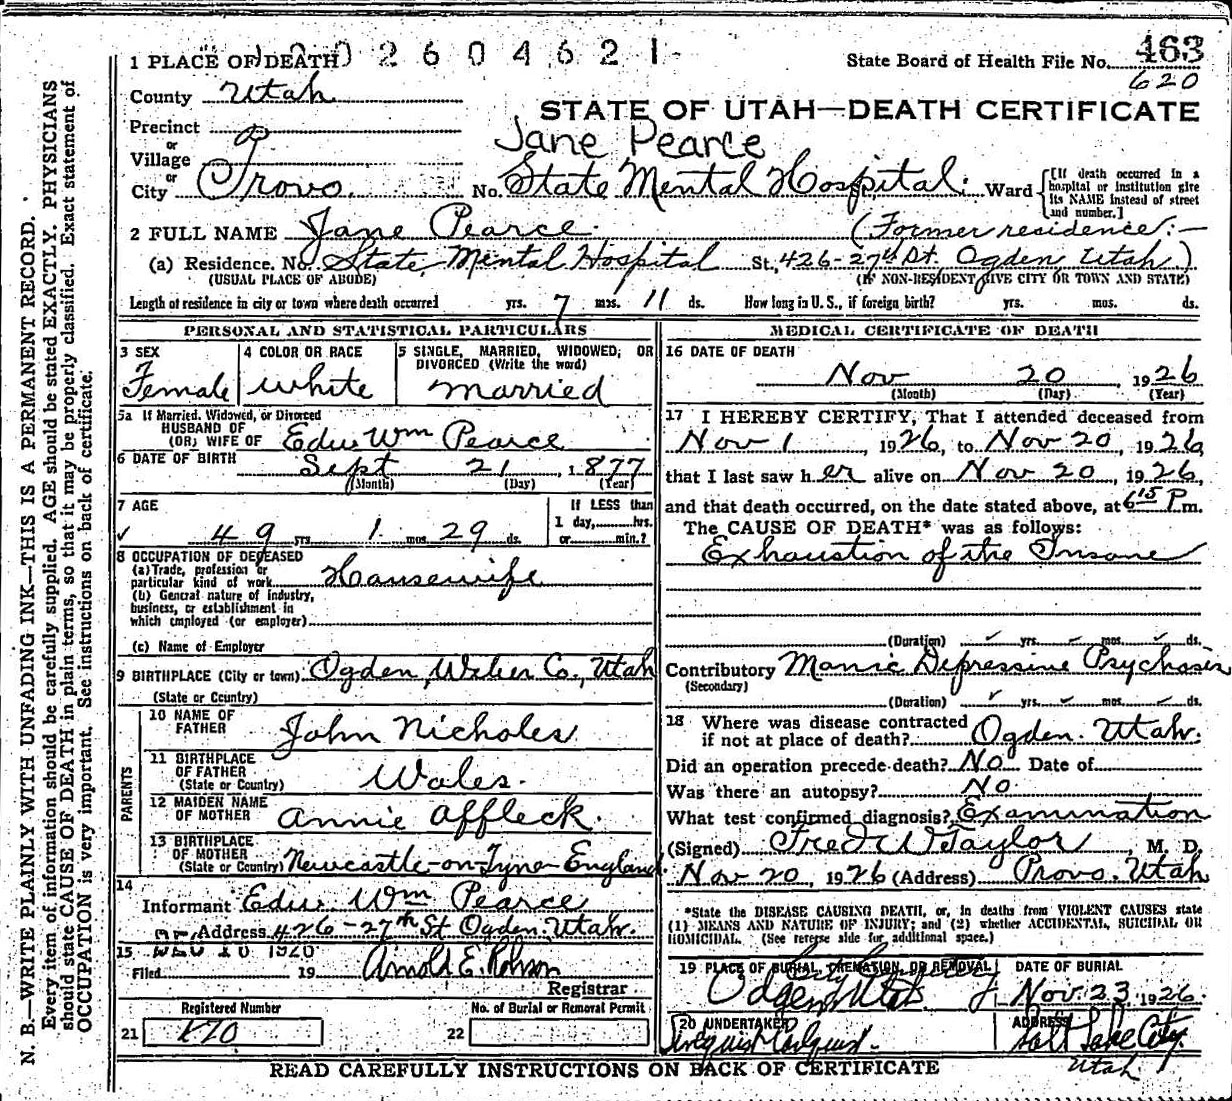 1 PLACE OF DEATH
2604621
State Board of Health File No. 463
620
County Utah
STATE OF UTAH—DEATH CERTIFICATE
Precinct
or
Jane Pearce
Village
or
City Provo. No. State Mental Hospital. Ward
[If death occurred in a hospital or institution give its NAME instead of street and number.]
2 FULL NAME Jane Pearce. (Former residence:—
(a) Residence. No. State Mental Hospital St., 426-27th St. Ogden Utah)
(USUAL PLACE OF ABODE) (IF NON-RESIDENT GIVE CITY OR TOWN AND STATE)
Length of residence in city or town where death occurred yrs. 7 mos. 11 ds. How long in U. S., if foreign birth? yrs. mos. ds.
PERSONAL AND STATISTICAL PARTICULARS
3 SEX
Female
4 COLOR OR RACE
White
5 SINGLE, MARRIED, WIDOWED, OR DIVORCED (Write the word)
Married
5a If Married, Widowed, or Divorced
HUSBAND OF
(OR) WIFE OF Edw Wm Pearce
6 DATE OF BIRTH Sept 21 1877
(Month) (Day) (Year)
7 AGE If LESS than
49 yrs. 1 mos. 29 ds. 1 day, hrs.
or min.?
8 OCCUPATION OF DECEASED
(a) Trade, profession or
particular kind of work Housewife
(b) General nature of industry,
business, or establishment in
which employed (or employer)
(c) Name of Employer
9 BIRTHPLACE (City or town) Ogden, Weber Co., Utah
(State or Country)
PARENTS
10 NAME OF
FATHER John Nicholes
11 BIRTHPLACE
OF FATHER
(State or Country) Wales.
12 MAIDEN NAME
OF MOTHER Annie Affleck.
13 BIRTHPLACE
OF MOTHER
(State or Country) Newcastle-on-Tyne England.
14
Informant Edw. Wm Pearce
Address 426-27th St Ogden. Utah.
15
Filed 19 Arnold E. Robson
Registrar
Registered Number No. of Burial or Removal Permit
21 22
MEDICAL CERTIFICATE OF DEATH
16 DATE OF DEATH
Nov 20, 1926
(Month) (Day) (Year)
17 I HEREBY CERTIFY, That I attended deceased from
Nov 1, 1926, to Nov 20, 1926,
that I last saw her alive on Nov 20, 1926,
and that death occurred, on the date stated above, at 6 15 P.m.
The CAUSE OF DEATH* was as follows:
Exhaustion of the Insane
(Duration) yrs. mos. ds.
Contributory Manic Depressive Psychosis
(Secondary)
(Duration) yrs. mos. ds.
18 Where was disease contracted
if not at place of death? Ogden. Utah.
Did an operation precede death? No Date of
Was there an autopsy? No.
What test confirmed diagnosis? Examination
(Signed) Fred W Taylor, M. D.
Nov 20, 1926 (Address) Provo. Utah
*State the DISEASE CAUSING DEATH, or, in deaths from VIOLENT CAUSES state
(1) MEANS AND NATURE OF INJURY; and (2) whether ACCIDENTAL, SUICIDAL OR
HOMICIDAL. (See reverse side for additional space.)
19 PLACE OF BURIAL, CREMATION, OR REMOVAL DATE OF BURIAL
City Cemetery
Ogden, Utah Nov. 23, 1926
20 UNDERTAKER ADDRESS
Salt Lake City
Utah
READ CAREFULLY INSTRUCTIONS ON BACK OF CERTIFICATE
N. B.—WRITE PLAINLY WITH UNFADING INK—THIS IS A PERMANENT RECORD.
Every item of information should be carefully supplied. AGE should be stated EXACTLY. PHYSICIANS
should state CAUSE OF DEATH in plain terms, so that it may be properly classified. Exact statement of
OCCUPATION is very important. See instructions on back of certificate.